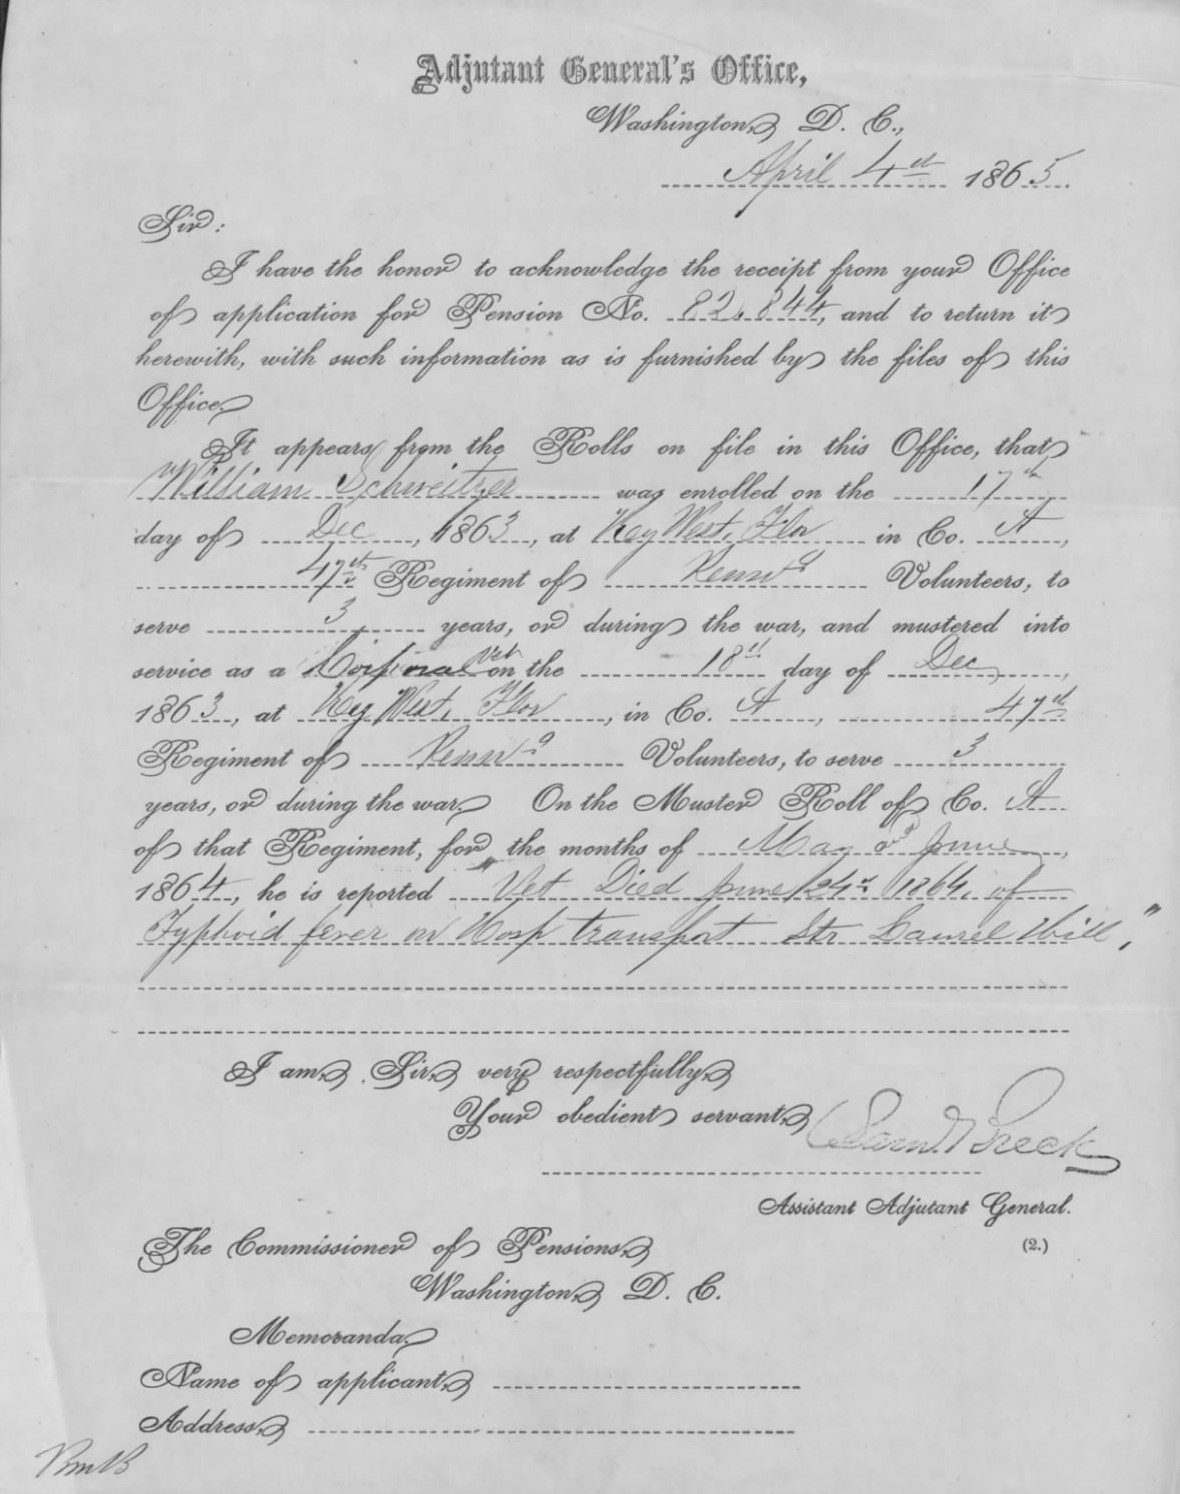 Adjutant General's Office,
Washington, D. C.,
April 4th 1865
Sir:
I have the honor to acknowledge the receipt from your Office
of application for Pension No. 82,844, and to return it
herewith, with such information as is furnished by the files of this
Office.
It appears from the Rolls on file in this Office, that
William Schweitzer was enrolled on the 17th
day of Dec, 1863, at Key West, Flor in Co. A,
47th Regiment of Pennsa Volunteers, to
serve 3 years, or during the war, and mustered into
service as a Corporal Vet on the 18th day of Dec,
1863, at Key West, Flor, in Co. A, 47th
Regiment of Pennsa Volunteers, to serve 3
years, or during the war. On the Muster Roll of Co. A
of that Regiment, for the months of May & June,
1864, he is reported "Vet Died June 24th 1864, of
Typhoid fever on Hosp transport Str Laurel Hill",
I am, Sir, very respectfully,
Your obedient servant,
Saml Breck
Assistant Adjutant General.
The Commissioner of Pensions,
(2.)
Washington, D. C.
Memoranda.
Name of applicant,
Address,